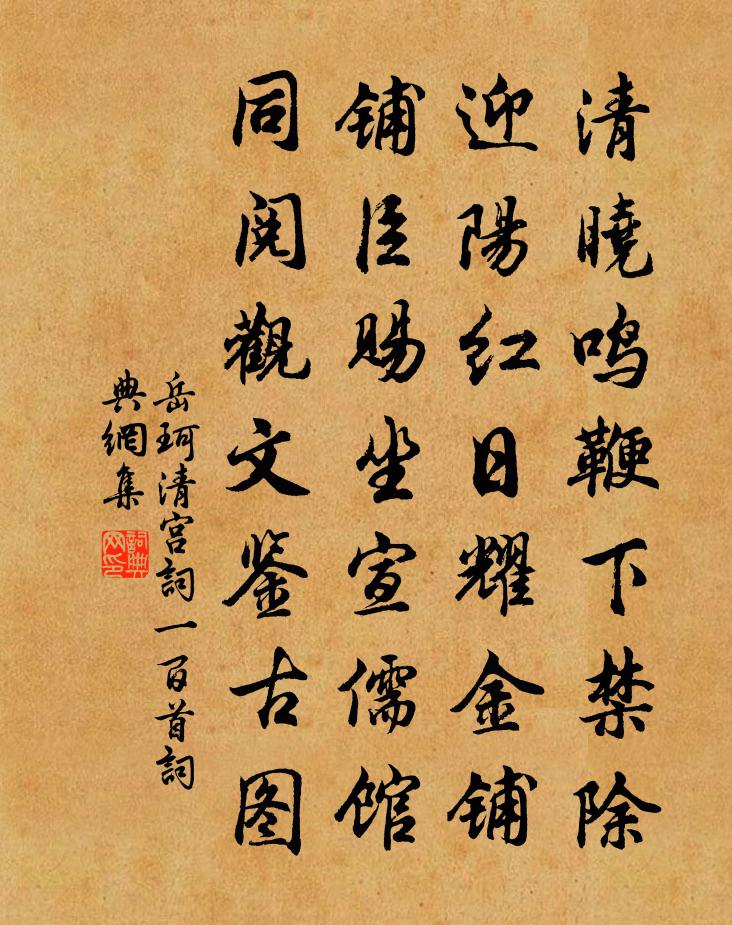 清曉鸣鞭下禁除
迎陽红日耀金铺
铺臣賜坐宣儒馆
同阅觀文鉴古图
岳珂清宫詞一百首詞
典網集
詞典网印